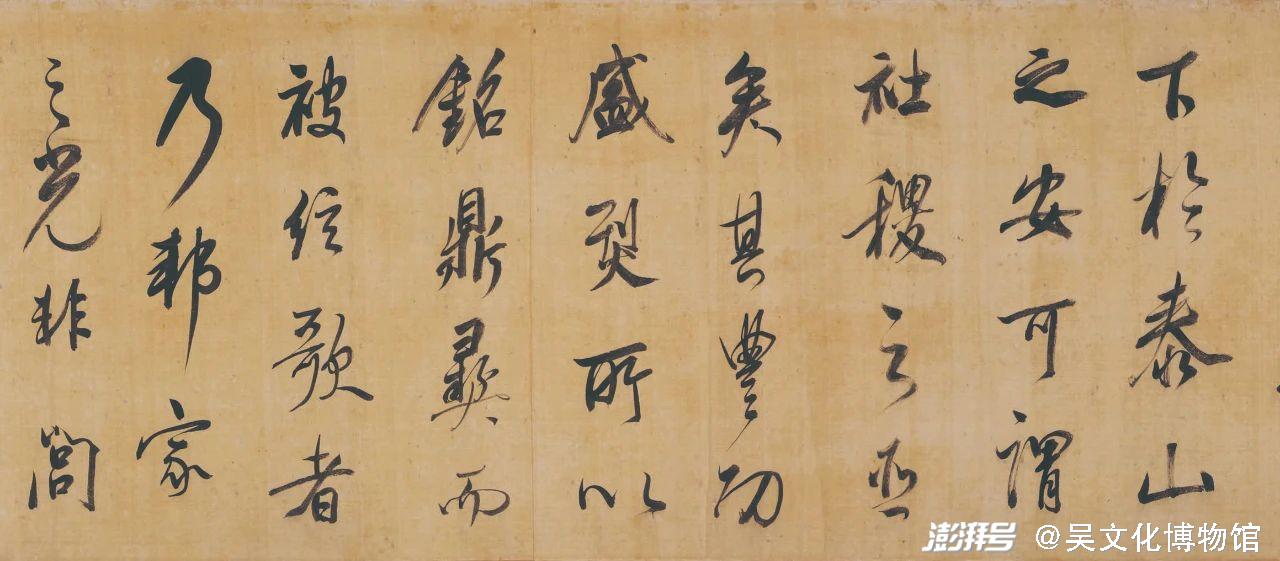 下於泰山
之安可謂
社稷之臣
矣其豐功
盛烈所以
銘鼎彝而
被絃歌者
乃邦家
之光非閭
澎湃号 @吴文化博物馆